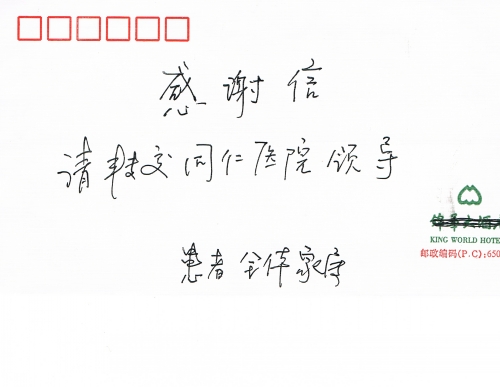 感谢信
请转交同仁医院领导
KING WORLD HOTE
邮政编码(P.C):650
患者全体家属